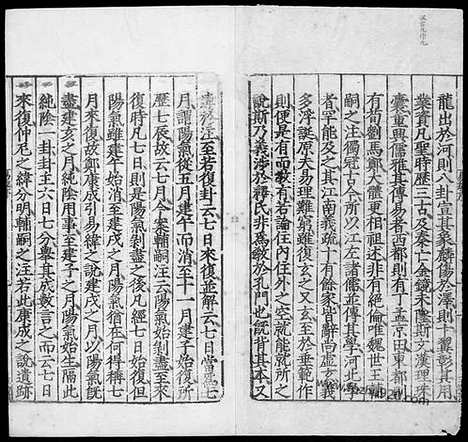 龍出於河則八卦宣其象麟傷於澤則十翼彰其用
業資凡聖時歷三古及秦亡金鏡未墜斯文漢理珠
囊重興儒雅其傳易者西都則有丁孟京田東都則
有荀劉馬鄭大體更相祖述非有絕倫唯魏世王輔
嗣之注獨冠古今所以江左諸儒並傳其學河北學
者罕能及之其江南義疏十有餘家皆辭尚虛玄義
多浮誕原夫易理難窮雖復玄之又玄至於垂範作
則便是有而敎有若論住內住外之空就能就所之
說斯乃義涉於釋氏非為敎於孔門也旣背其本又
違於注至若復卦云七日來復並解云七日當為七
月謂陽氣從五月建午而消至十一月建子始復所
歷七辰故云七月今案輔嗣注云陽氣始剝盡至來
復時凡七日則是陽氣剝盡之後凡經七日始復但
陽氣雖建午始消至建戌之月陽氣猶在何得稱七
月來復故鄭康成引易緯之說建戌之月以陽氣旣
盡建亥之月純陰用事至建子之月陽氣始生隔此
純陰一卦卦主六日七分舉其成數言之而云七日
來復仲尼之緯分明輔嗣之注若此康成之說遺跡